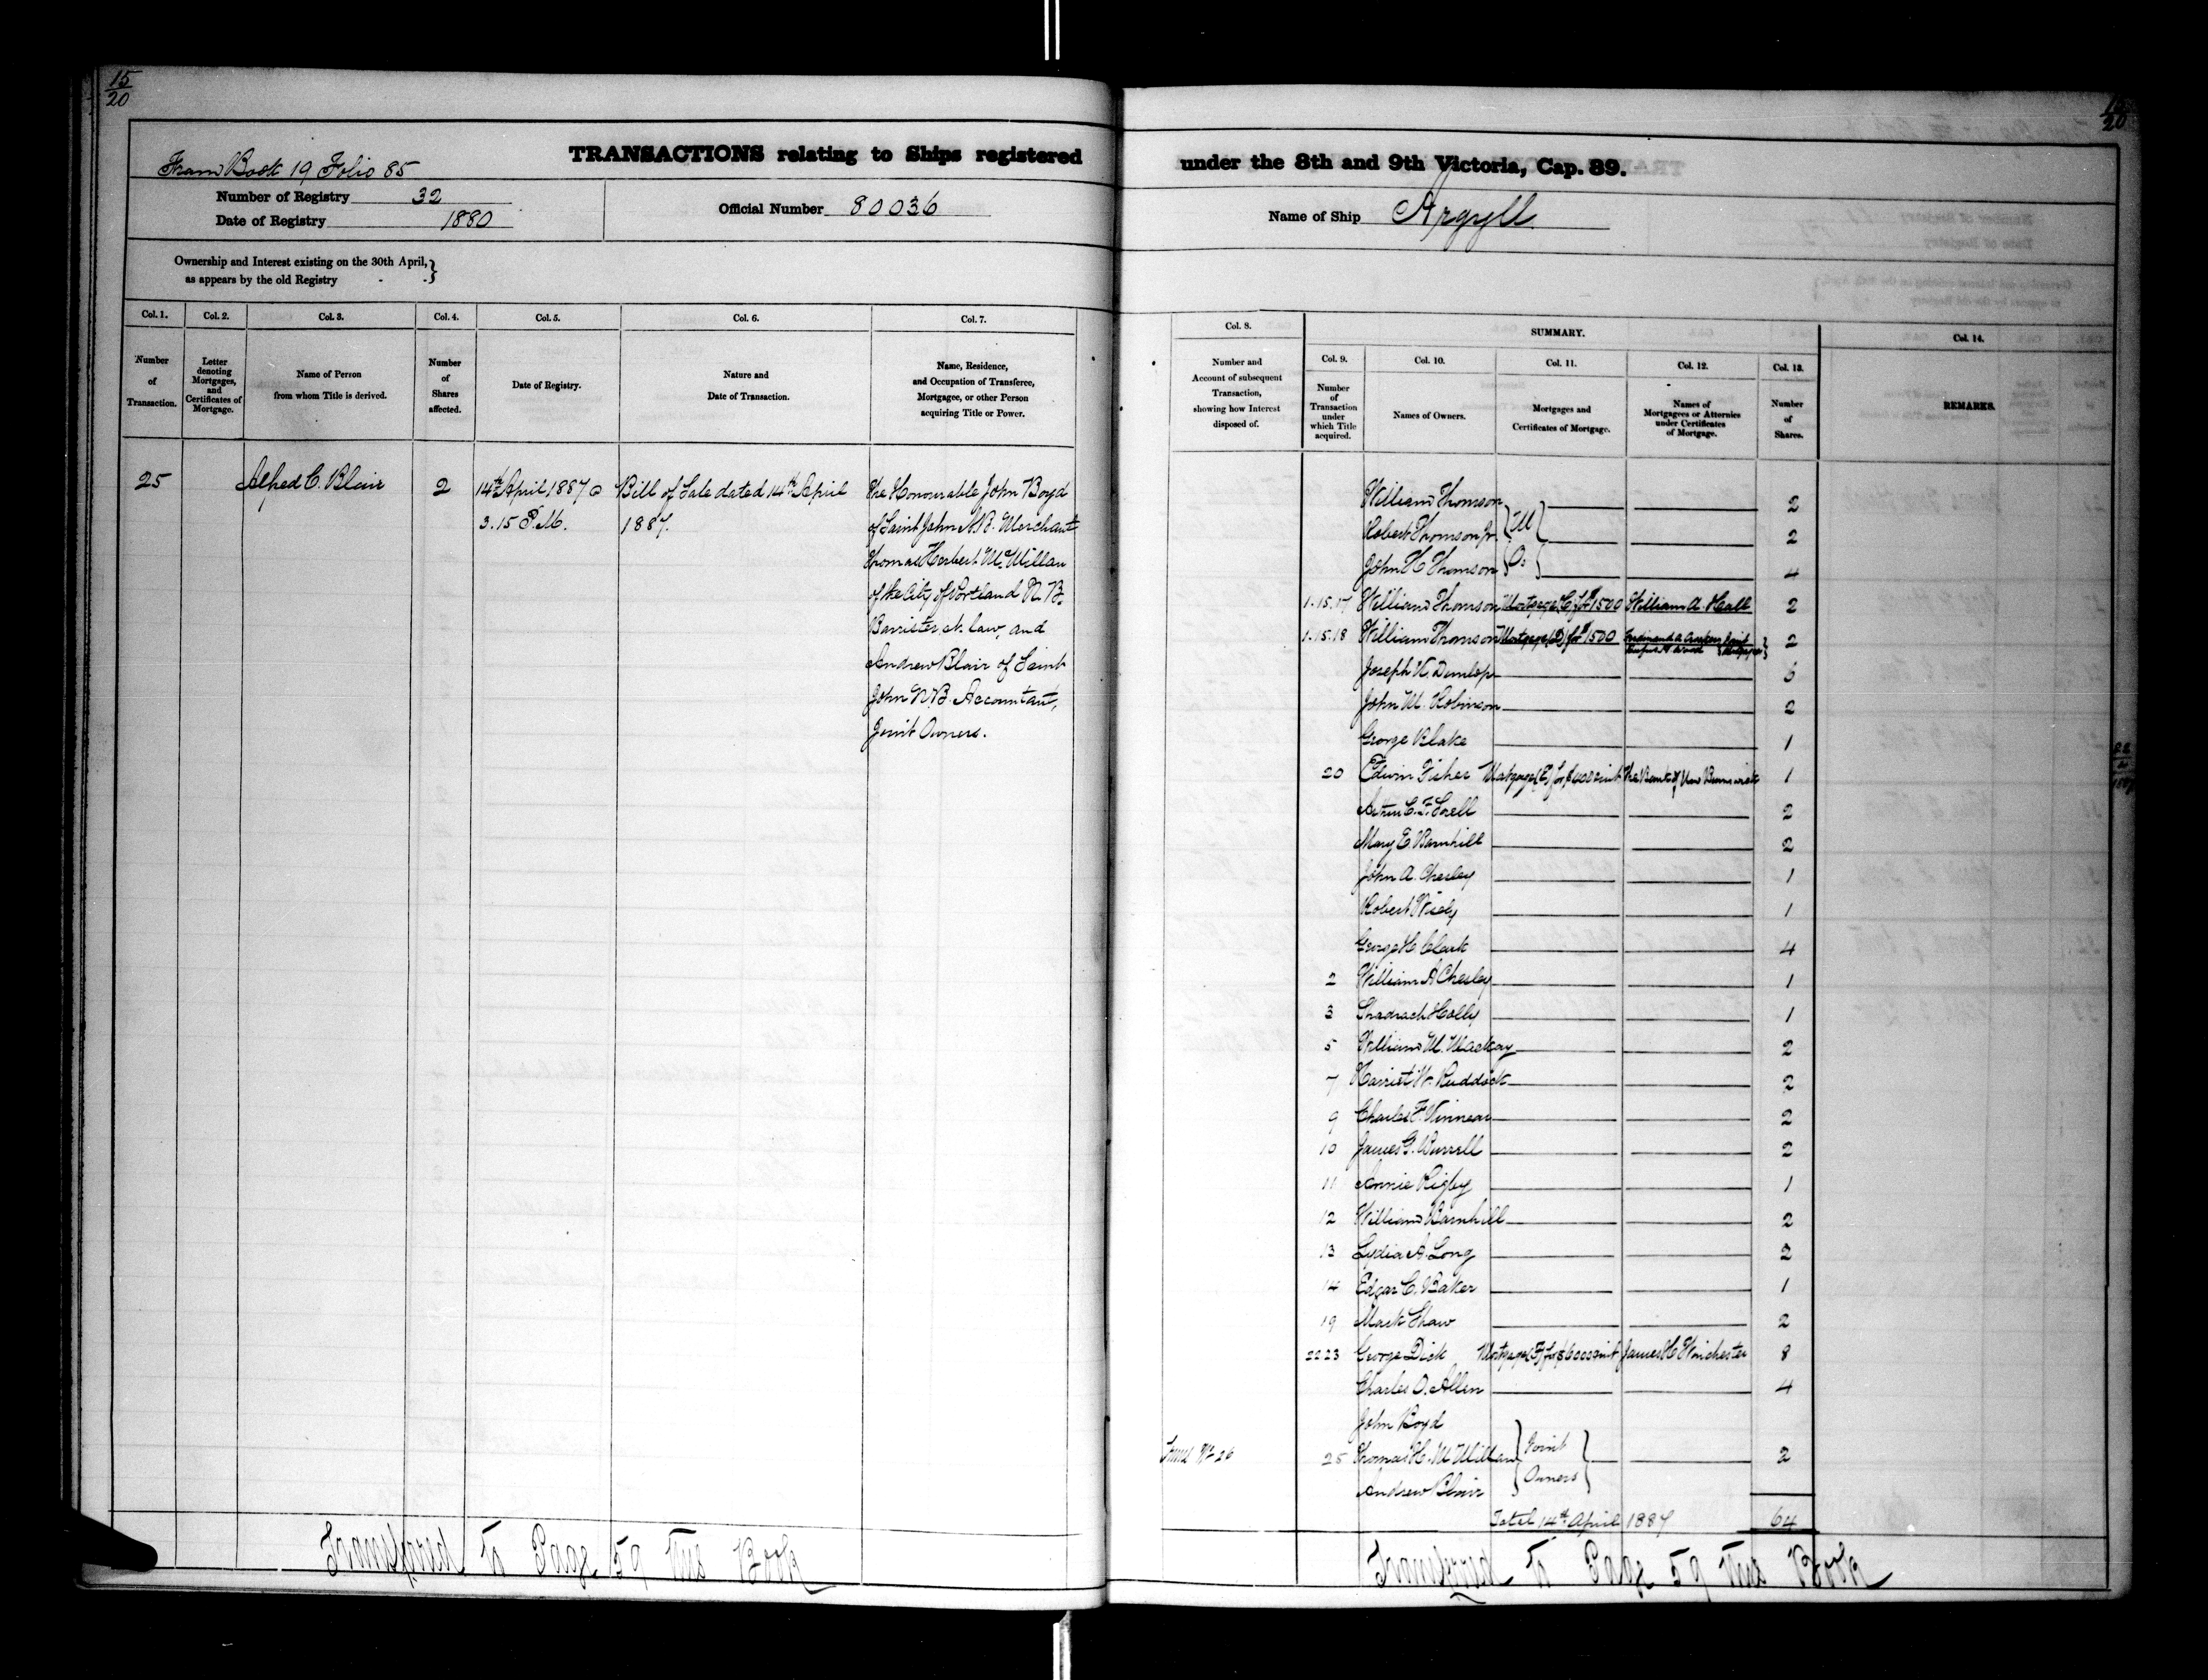 15
20
TRANSACTIONS relating to Ships registered
From Book 19 Folio 85
Number of Registry 32
Date of Registry 1880
Official Number 80036
Ownership and Interest existing on the 30th April,
as appears by the old Registry - - }
Col. 1. Col. 2. Col. 3. Col. 4. Col. 5. Col. 6. Col. 7.
Number of Transaction.
Letter denoting Mortgages, and Certificates of Mortgage.
Name of Person from whom Title is derived.
Number of Shares affected.
Date of Registry.
Nature and Date of Transaction.
Name, Residence, and Occupation of Transferee, Mortgagee, or other Person acquiring Title or Power.
25 Alfred C. Blair 2 14th April 1887 @ Bill of Sale dated 14th April The Honourable John Boyd
3.15 P.M. 1887. of Saint John N.B. Merchant
Thomas Herbert McMillan
of the City of Portland N.B.
Barrister at law, and
Andrew Blair of Saint
John N.B. Accountant,
Joint Owners.
Transferred to Page 59 this Book
20
under the 8th and 9th Victoria, Cap. 89.
Name of Ship Argyll
Col. 8. SUMMARY. Col. 14.
Col. 9. Col. 10. Col. 11. Col. 12. Col. 13.
Number and Account of subsequent Transaction, showing how Interest disposed of.
Number of Transaction under which Title acquired.
Names of Owners.
Mortgages and Certificates of Mortgage.
Names of Mortgagees or Attornies under Certificates of Mortgage.
Number of Shares.
REMARKS.
William Thomson 2
Robert Thomson Jr. M 2
John H Thomson O: 4
1.15.17 William Thomson Mortgage (C) for $1500 William A. Hall 2
1.15.18 William Thomson Mortgage (D) for $1500 Joint 2
Joseph K. Dunlop
John M. Robinson 2
George Blake 1
20 Edwin Fisher Mortgage (E) for The Bank of New Brunswick 1
2
Mary E. Barnhill 2
John A. Chesley 1
Robert Wisely 1
George H. Clark 4
2 William A Chesley 1
3 Shadrach Holly 1
5 William M. Mackay 2
7 Harriet W. Ruddock 2
9 Charles F. Kinnear 2
10 James G. Burrell 2
11 Annie Rigby 1
12 William Barnhill 2
13 Lydia A. Long 2
14 Edgar C. Baker 1
19 Mark Shaw 2
22 23 George Dick Mortgage (F) for $6000 & int James H Winchester 8
Charles D. Allen 4
John Boyd
Trans No 26 25 Thomas H. McMillan Joint 2
Andrew Blair Owners
Total 14th April 1887 64
Transferred to Page 59 this Book